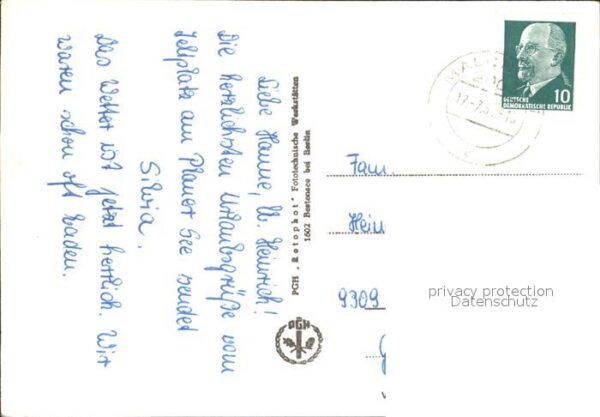 Liebe Hanne, lb. Heinrich!
Die herzlichsten Urlaubsgrüße vom
Zeltplatz am Plauer See sendet
Silvia.
Das Wetter ist jetzt herrlich. Wir
waren schon oft baden.
PGH „Rotophot" Fototechnische Werkstätten
1602 Bestensee bei Berlin
PGH
DEUTSCHE
DEMOKRATISCHE REPUBLIK
10
Fam.
Hein
9309
privacy protection
Datenschutz